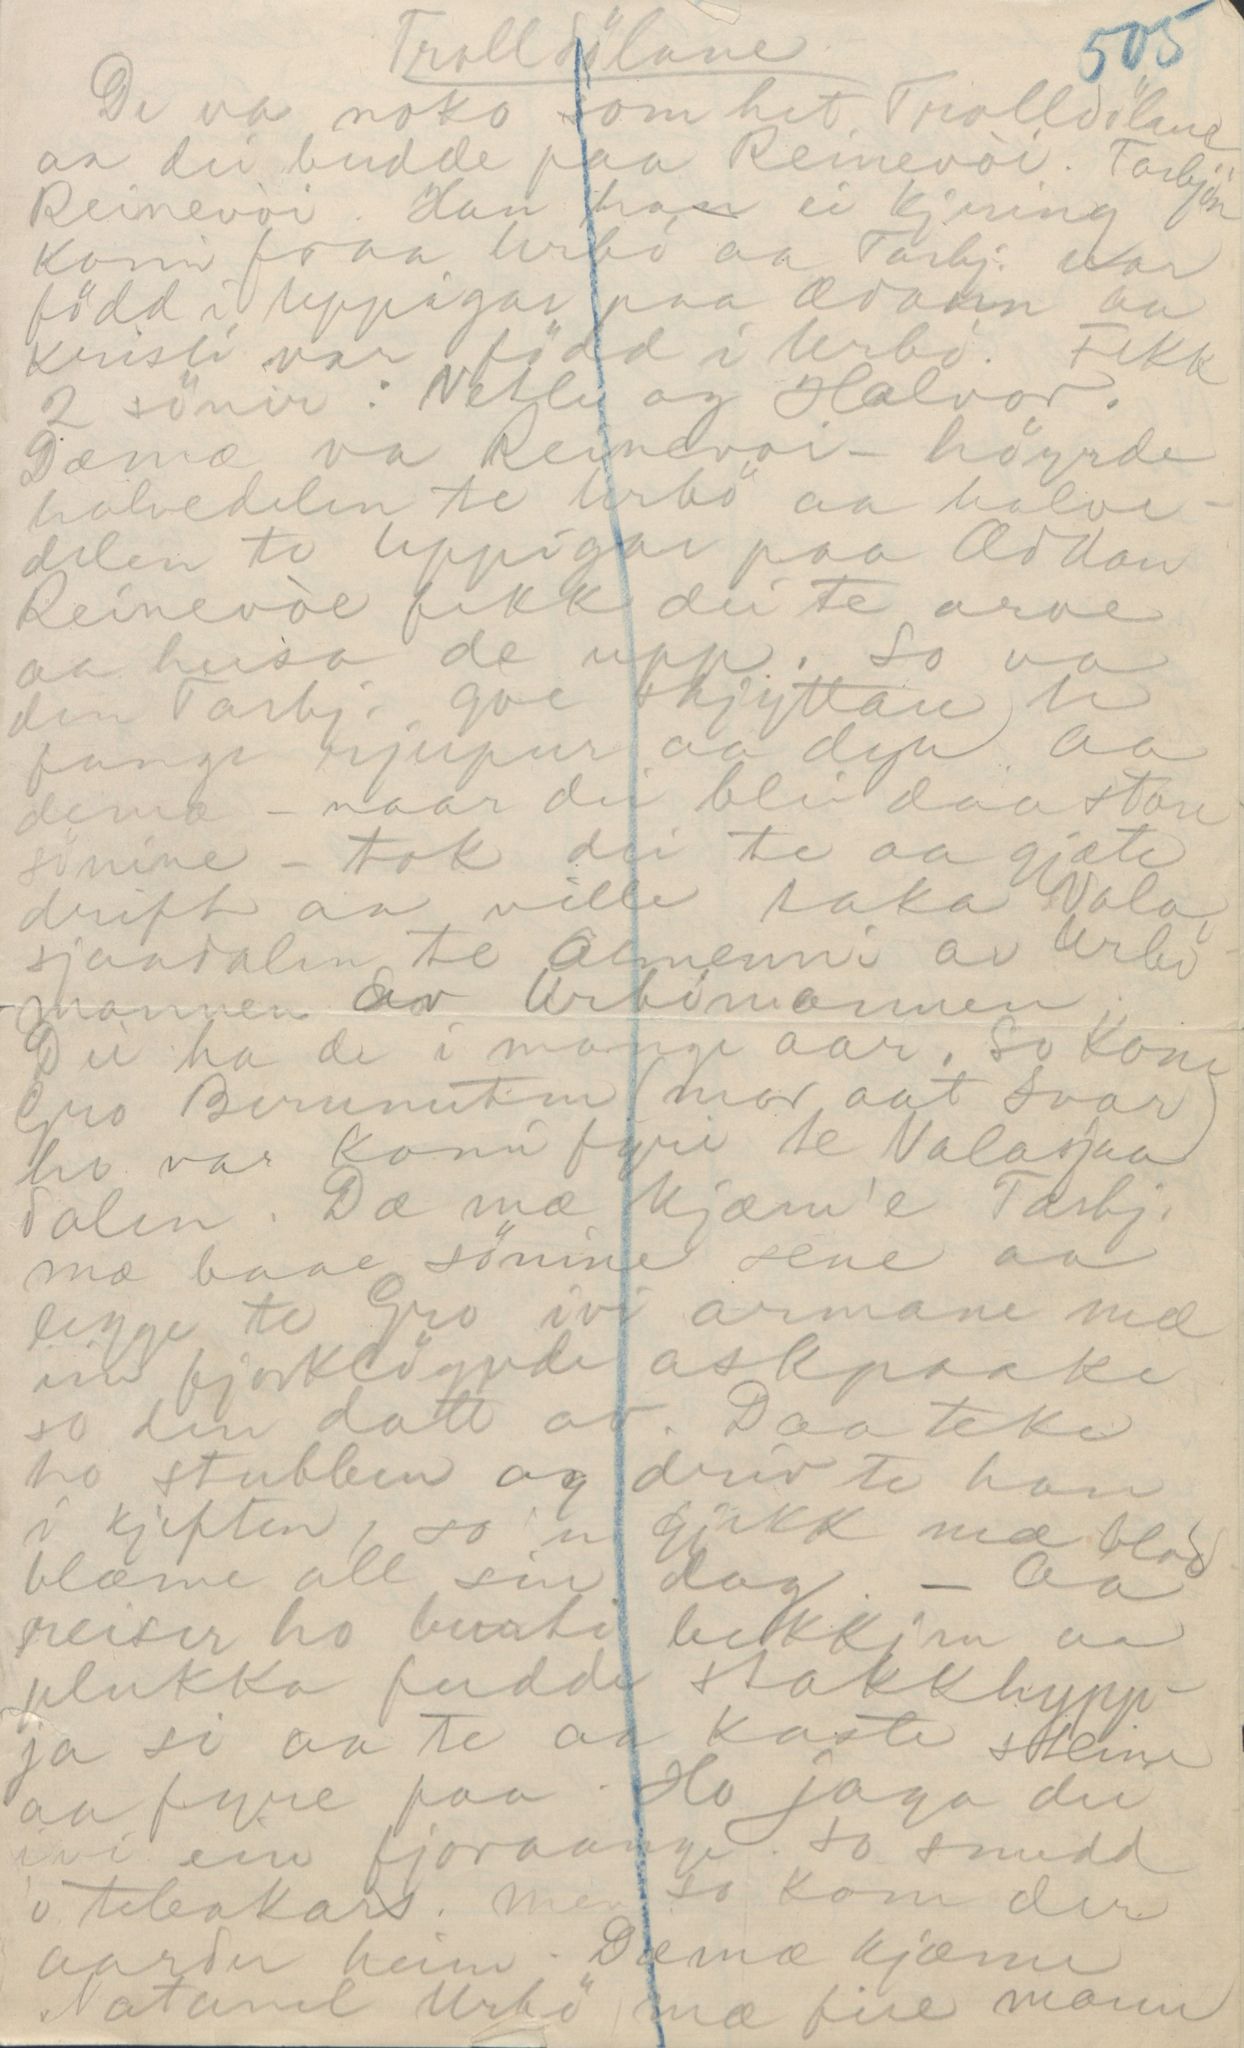 505
Trolldölane
De va noko som het Trolldölane
aa dei budde paa Reinevòi. Tarbjön
Reinevòi. Han har ei kjering
komi fraa Urbö aa Tarbj. var
född i Uppigar paa Ødann aa
Kristi var född i Urbö. Fekk
2 sönir: Vetle og Halvor.
Dæmæ va Reinevoi - höyrde
halvedelen te Urbö aa halve-
delen te Uppigar paa Øddan
Reinevòe fekk dei te arve
aa huisa de upp. So va
den Tarbj. goe skjyttan te
fange rjupur aa dyr. Aa
demæ - naar dei blei daa store
sönine - tok dei te aa gjæte
drift aa ville taka Vala
sjaadalen te Almenni av Urbö-
mannen av Urbömannen.
Dei ha de i mange aar. So kom
Gro Berunuten (mor aat Svar)
ho var komi fyri te Valasjaa
dalen. Dæ mæ kjæm'e Tarbj.
mæ baae sönine sene aa
legge te Gro ivi armane mæ
ein fjorklöyvde askpaake
so den datt av. Daa teke
ho stubben og driv te han
i kjeften, so 'n gjekk mæ blod
blæme all sin dag. - Aa
reiser ho burti bekkjen aa
plukka fudde stakkhypp-
ja si aa te aa kaste steine
aa fyre paa. Ho jaga dei
ivi ein fjoraange. So snudd
o telbakars. Men so kom der
aarder heim. Dæmæ kjæme
Natanel Urbö mæ fire mann